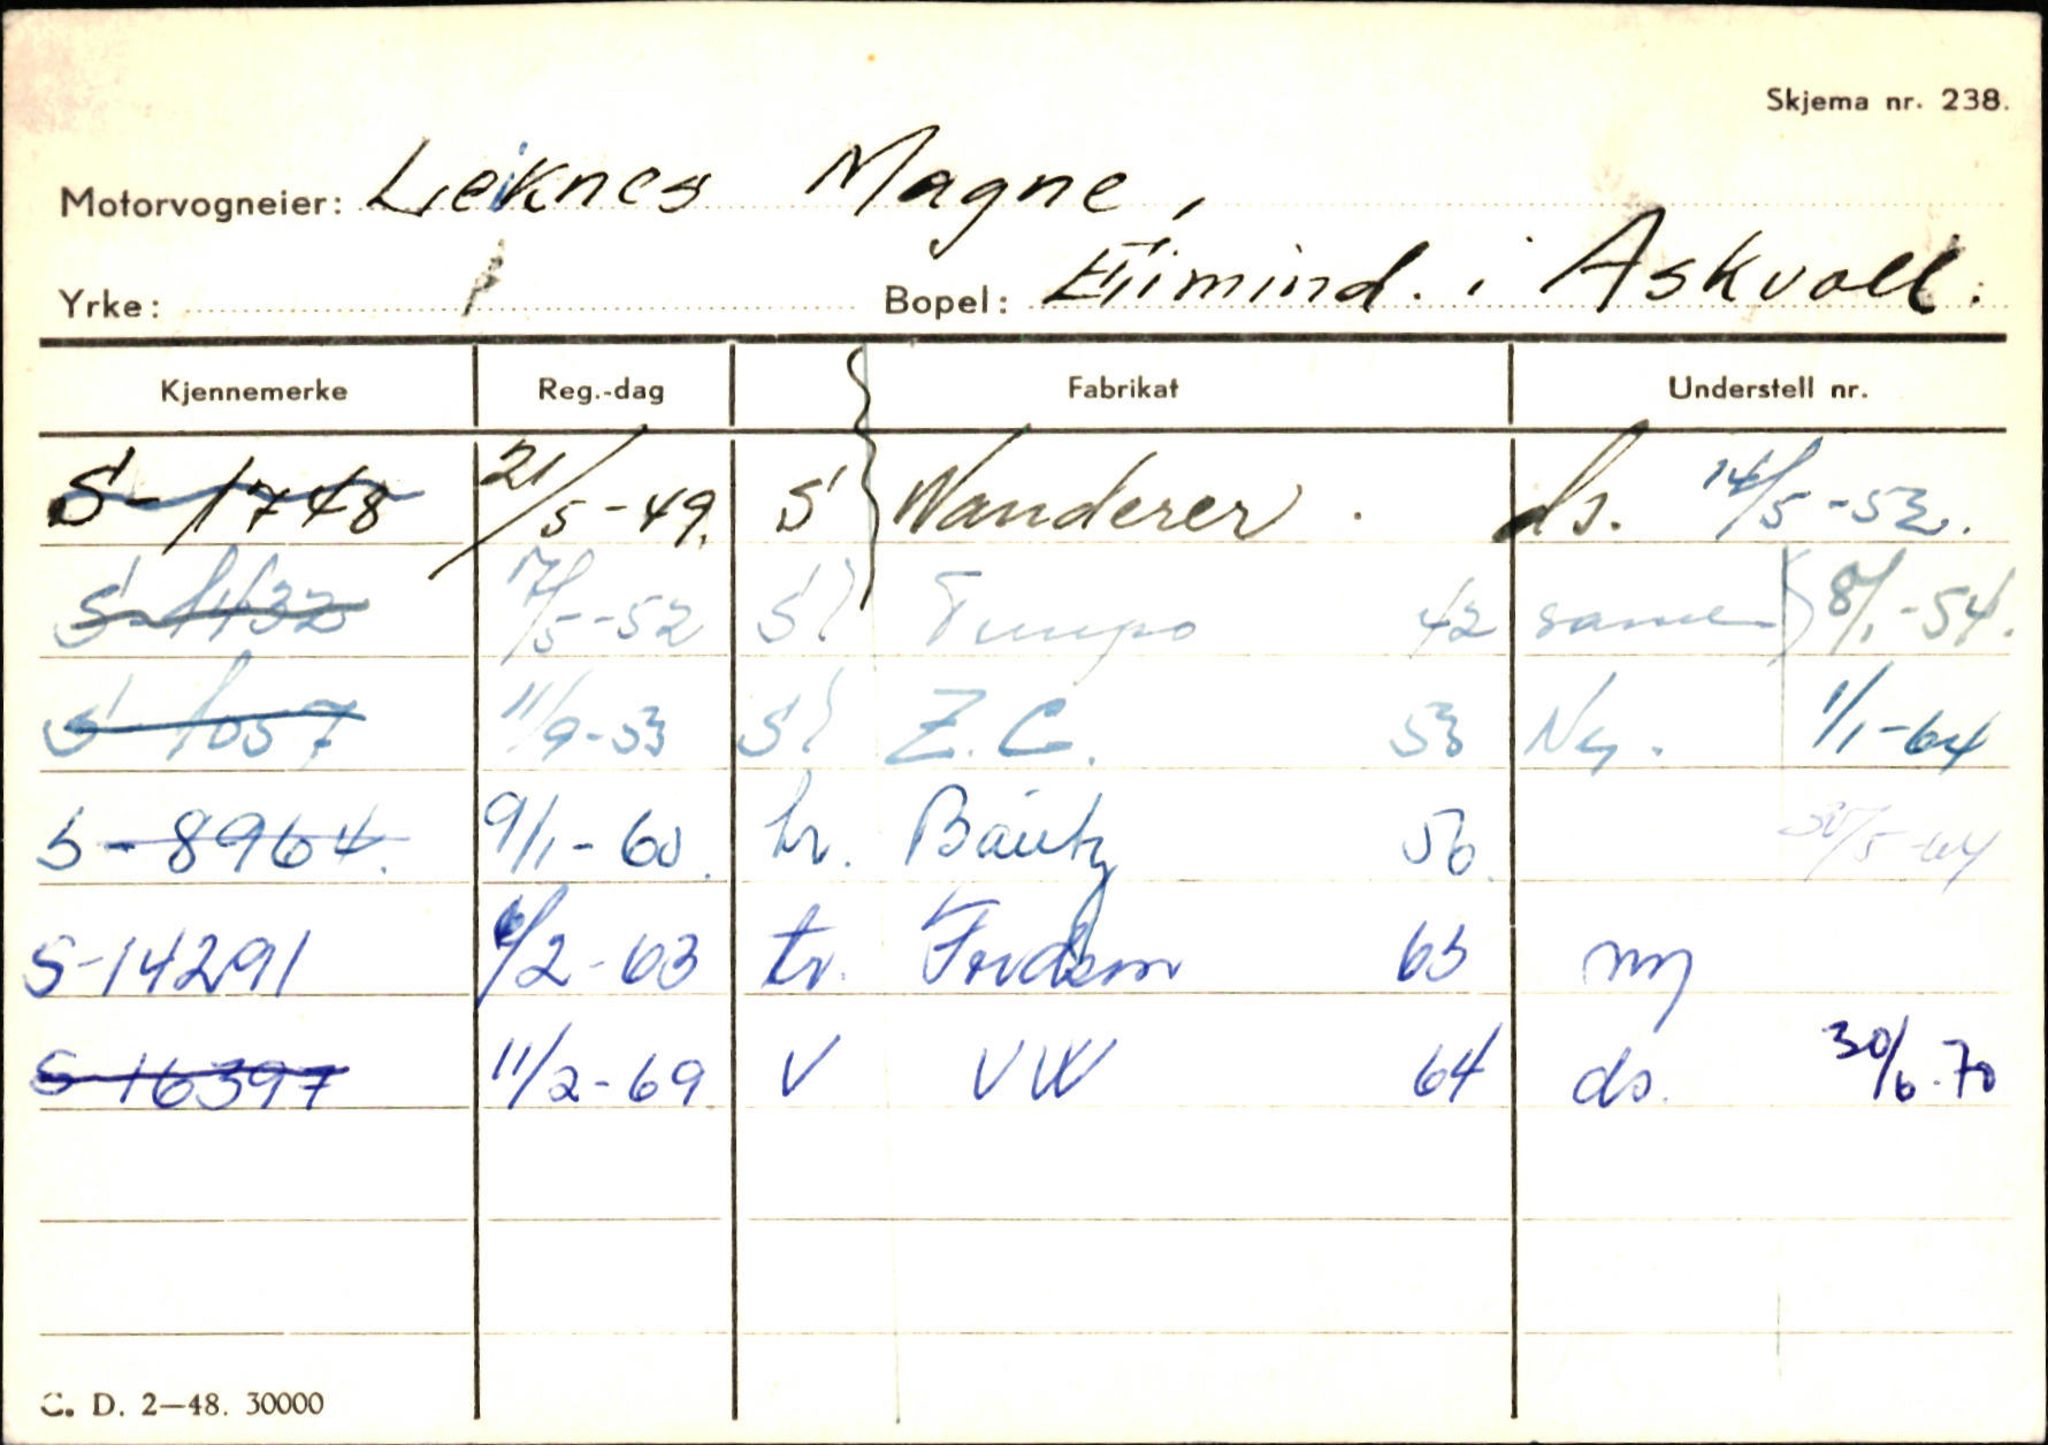 Skjema nr. 238.
Motorvogneier: Leiknes Magne,
Yrke: Bopel: i Askvoll.
Kjennemerke Reg.-dag Fabrikat Understell nr.
S-1748 21/5-49. S Wanderer. ds. 14/5-52.
S-1132 17/5-52 S Tempo 42 samme 8/1-54.
S-1057 11/9-53 S Z.C. 53 Ny. 1/1-64
S-8964. 9/1-60. tr. Bautz 56. 30/5-64
S-14291 /2-63 tr. Fordson 63 ny
S-16397 11/2-69 V VW 64 ds. 30/6-70
C. D. 2—48. 30000